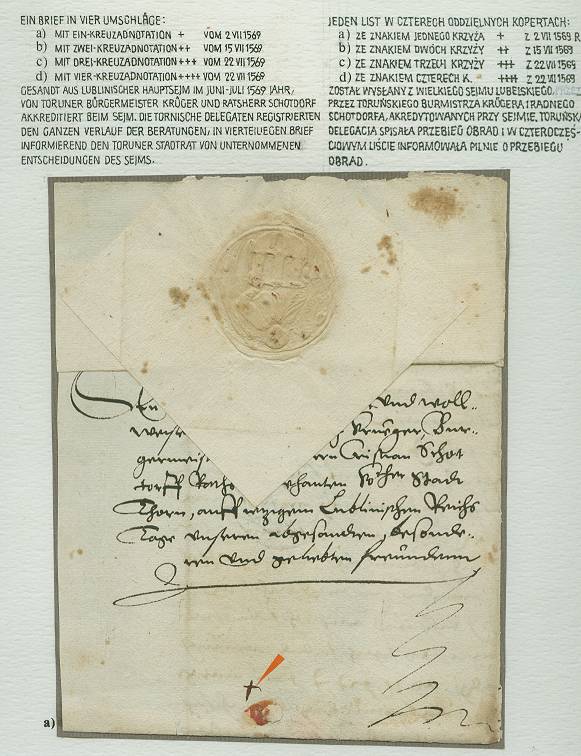 EIN BRIEF IN VIER UMSCHLÄGE:
a) MIT EIN-KREUZADNOTATION + VOM 2 VII 1569
b) MIT ZWEI-KREUZADNOTATION ++ VOM 15 VII 1569
c) MIT DREI-KREUZADNOTATION +++ VOM 22 VII 1569
d) MIT VIER-KREUZADNOTATION ++++ VOM 22 VII 1569
GESANDT AUS LUBLINISCHER HAUPTSEJM IM JUNI-JULI 1569 JAHR,
VON TORUNER BÜRGERMEISTER KRÜGER UND RATSHERR SCHOTDORF
AKKREDITIERT BEIM SEJM. DIE TORNISCHE DELEGATEN REGISTRIERTEN
DEN GANZEN VERLAUF DER BERATUNGEN, IN VIERTEIUEGEN BRIEF
INFORMIEREND DEN TORUNER STADTRAT VON UNTERNOMMENEN
ENTSCHEIDUNGEN DES SEJMS.
JEDEN LIST W CZTERECH ODDZIELNYCH KOPERTACH:
a) ZE ZNAKIEM JEDNEGO KRZYŻA + Z 2 VII 1569 R
b) ZE ZNAKIEM DWÓCH KRZYŻY ++ Z 15 VII 1569
c) ZE ZNAKIEM TRZECH KRZYŻY +++ Z 22 VII 1569
d) ZE ZNAKIEM CZTERECH K. ++++ Z 22 VII 1569
ZOSTAŁ WYSŁANY Z WIELKIEGO SEJMU LUBELSKIEGO,
PRZEZ TORUŃSKIEGO BURMISTRZA KRÜGERA I RADNEGO
SCHOTDORFA, AKREDYTOWANYCH PRZY SEJMIE. TORUŃSKA
DELEGACJA SPISAŁA PRZEBIEG OBRAD I W CZTEROCZĘŚ-
CIOWYM LIŚCIE INFORMOWAŁA PILNIE O PRZEBIEGU
OBRAD.
und woll-
weise Krueger, Bur-
germeis Cristian Schot
torff Raths Stadt
Thorn, auff ietzigem Lublinischen Reichs
Tage unseren abgesandten, besonde-
ren und geliebten freundenn
+
a)